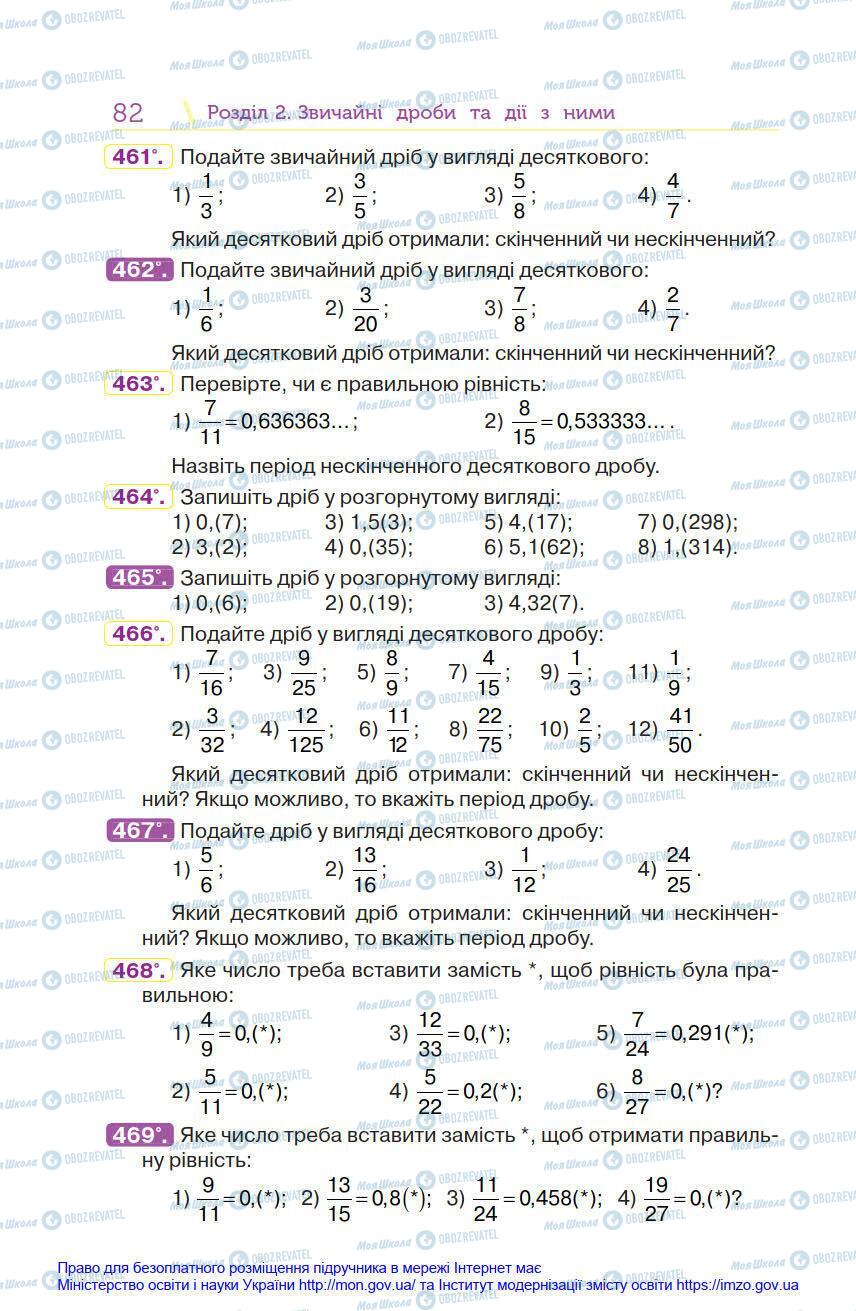 82 Розділ 2. Звичайні дроби та дії з ними
461°. Подайте звичайний дріб у вигляді десяткового:
1) 1/3; 2) 3/5; 3) 5/8; 4) 4/7.
Який десятковий дріб отримали: скінченний чи нескінченний?
462°. Подайте звичайний дріб у вигляді десяткового:
1) 1/6; 2) 3/20; 3) 7/8; 4) 2/7.
Який десятковий дріб отримали: скінченний чи нескінченний?
463°. Перевірте, чи є правильною рівність:
1) 7/11 = 0,636363...; 2) 8/15 = 0,533333... .
Назвіть період нескінченного десяткового дробу.
464°. Запишіть дріб у розгорнутому вигляді:
1) 0,(7); 3) 1,5(3); 5) 4,(17); 7) 0,(298);
2) 3,(2); 4) 0,(35); 6) 5,1(62); 8) 1,(314).
465°. Запишіть дріб у розгорнутому вигляді:
1) 0,(6); 2) 0,(19); 3) 4,32(7).
466°. Подайте дріб у вигляді десяткового дробу:
1) 7/16; 3) 9/25; 5) 8/9; 7) 4/15; 9) 1/3; 11) 1/9;
2) 3/32; 4) 12/125; 6) 11/12; 8) 22/75; 10) 2/5; 12) 41/50.
Який десятковий дріб отримали: скінченний чи нескінчен-
ний? Якщо можливо, то вкажіть період дробу.
467°. Подайте дріб у вигляді десяткового дробу:
1) 5/6; 2) 13/16; 3) 1/12; 4) 24/25.
Який десятковий дріб отримали: скінченний чи нескінчен-
ний? Якщо можливо, то вкажіть період дробу.
468°. Яке число треба вставити замість *, щоб рівність була пра-
вильною:
1) 4/9 = 0,(*); 3) 12/33 = 0,(*); 5) 7/24 = 0,291(*);
2) 5/11 = 0,(*); 4) 5/22 = 0,2(*); 6) 8/27 = 0,(*)?
469°. Яке число треба вставити замість *, щоб отримати правиль-
ну рівність:
1) 9/11 = 0,(*); 2) 13/15 = 0,8(*); 3) 11/24 = 0,458(*); 4) 19/27 = 0,(*)?
Право для безоплатного розміщення підручника в мережі Інтернет має
Міністерство освіти і науки України http://mon.gov.ua/ та Інститут модернізації змісту освіти https://imzo.gov.ua
МояШкола OBOZREVATEL